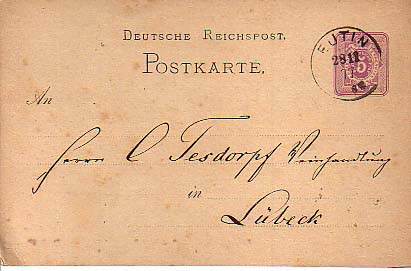 DEUTSCHE REICHSPOST.
POSTKARTE.
EUTIN
28 11
5
An
Herrn C Tesdorpf Weinhandlung
in
Lübeck